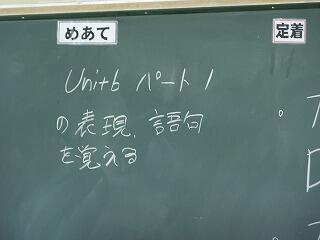 めあて
定着
Unit6 パート1
の表現、語句
を覚える